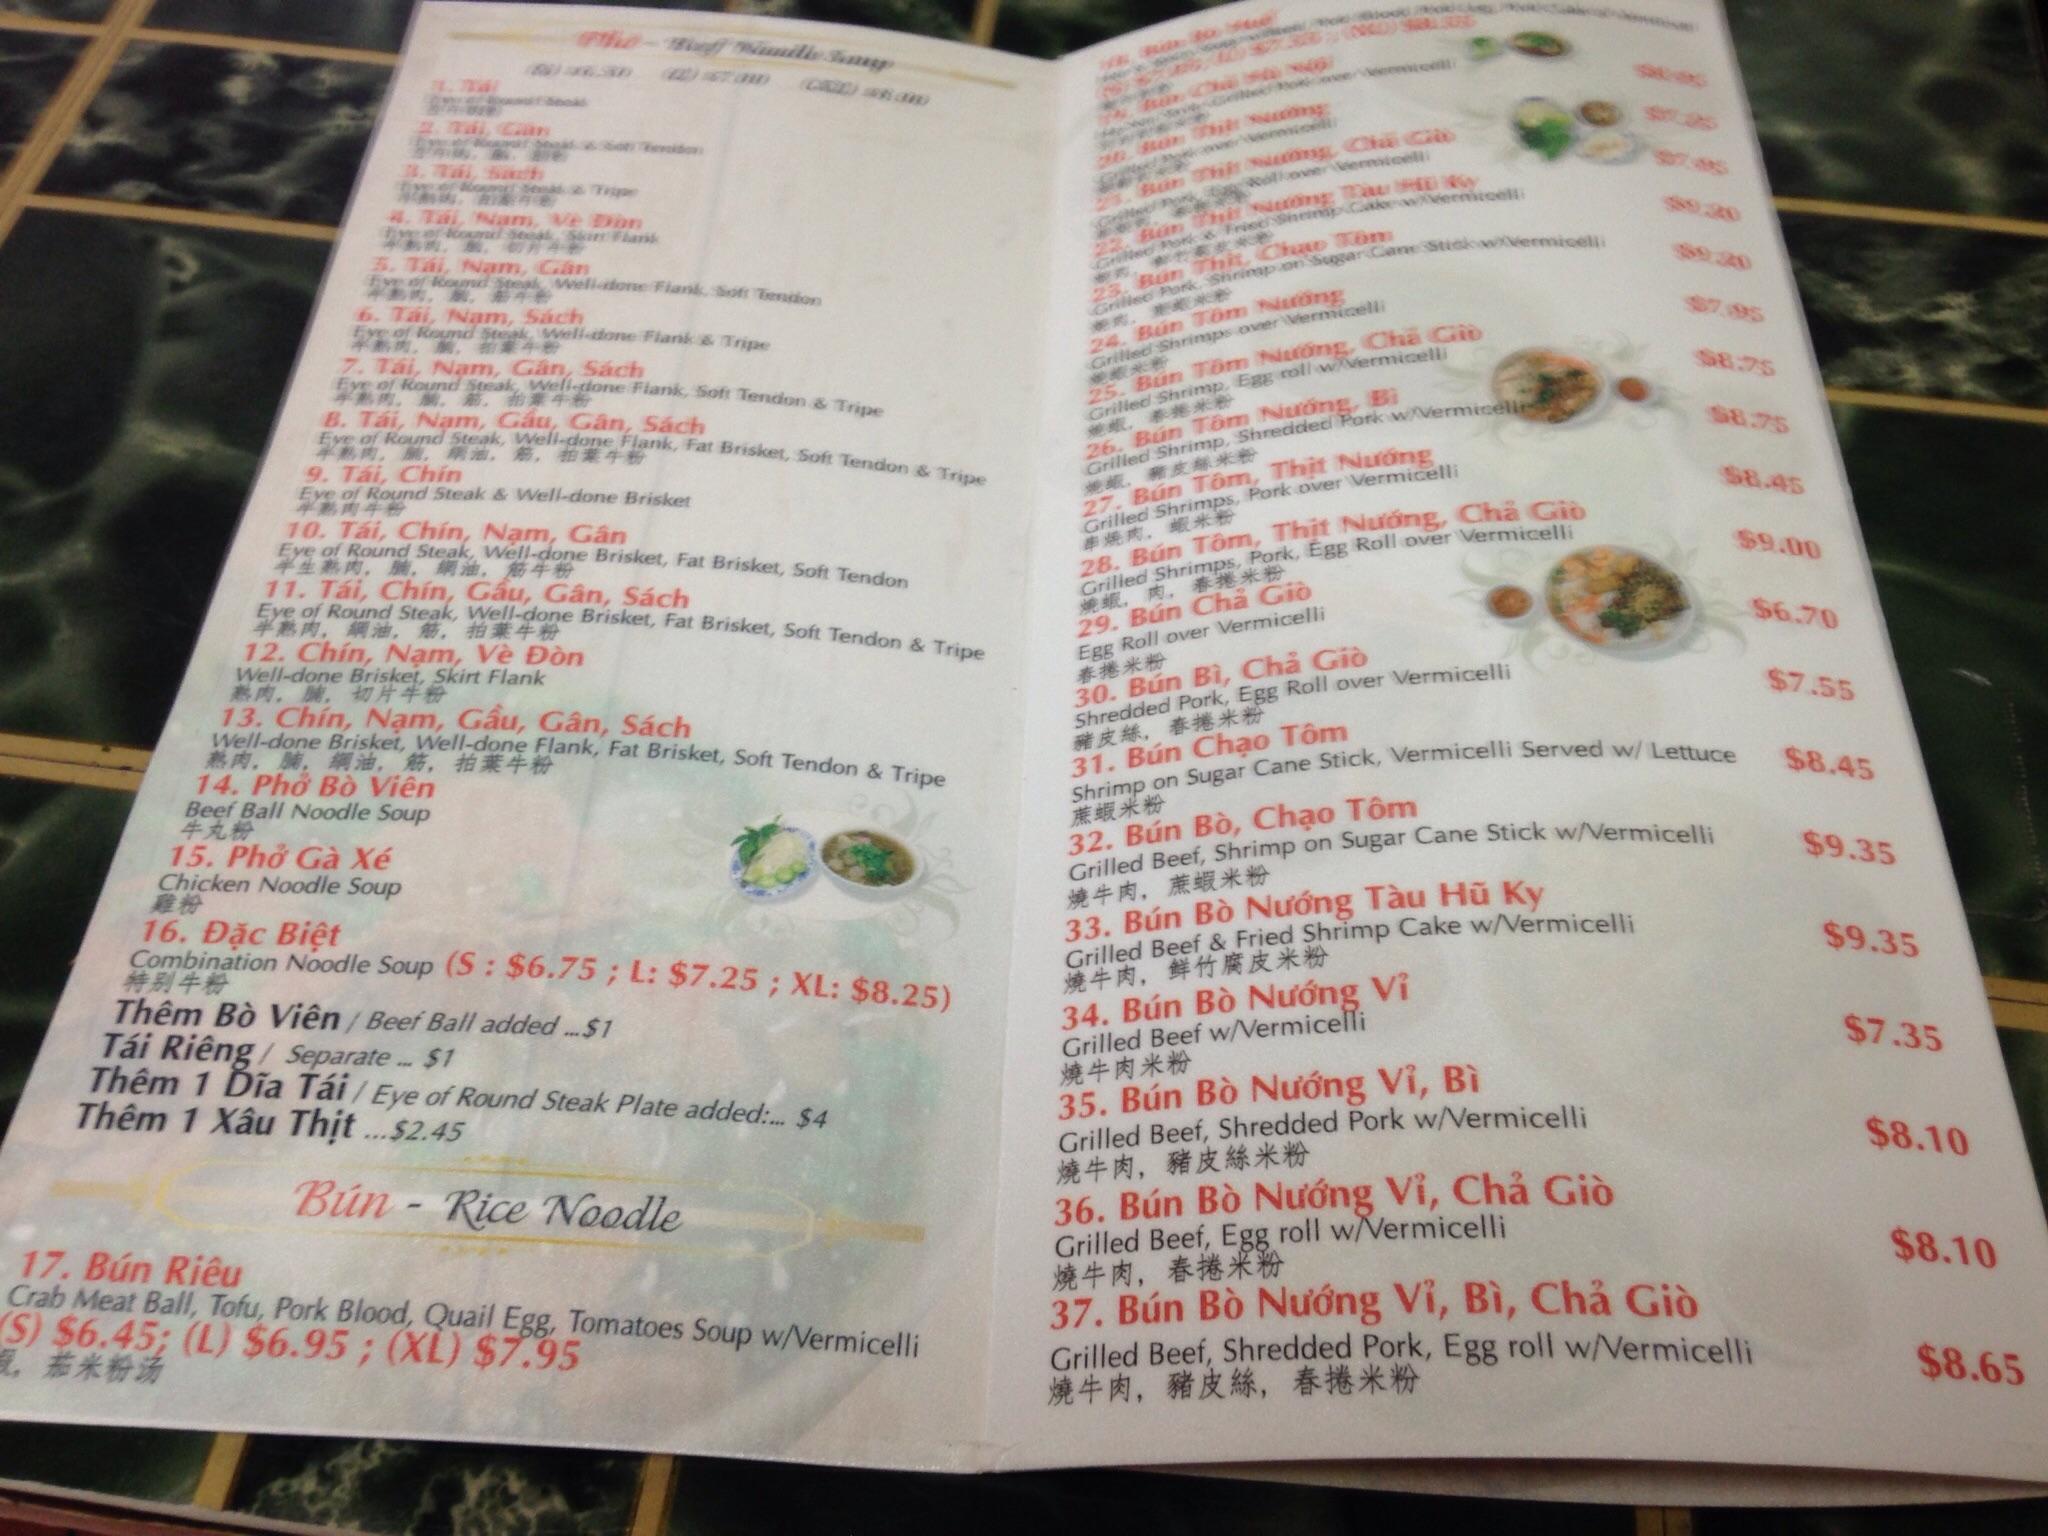 Phở - Beef Noodle Soup
1. Tái
Eye of Round Steak
2. Tái, Gân
Eye of Round Steak & Soft Tendon
3. Tái, Sách
Eye of Round Steak & Tripe
4. Tái, Nạm, Vè Dòn
Eye of Round Steak, Skirt Flank
5. Tái, Nạm, Gân
Eye of Round Steak, Well-done Flank, Soft Tendon
半熟肉, 腩, 筋牛粉
6. Tái, Nạm, Sách
Eye of Round Steak, Well-done Flank & Tripe
半熟肉, 腩, 拍葉牛粉
7. Tái, Nạm, Gân, Sách
Eye of Round Steak, Well-done Flank, Soft Tendon & Tripe
半熟肉, 腩, 筋, 拍葉牛粉
8. Tái, Nạm, Gầu, Gân, Sách
Eye of Round Steak, Well-done Flank, Fat Brisket, Soft Tendon & Tripe
半熟肉, 腩, 網油, 筋, 拍葉牛粉
9. Tái, Chín
Eye of Round Steak & Well-done Brisket
半熟肉牛粉
10. Tái, Chín, Nạm, Gân
Eye of Round Steak, Well-done Brisket, Fat Brisket, Soft Tendon
半生熟肉, 腩, 網油, 筋牛粉
11. Tái, Chín, Gầu, Gân, Sách
Eye of Round Steak, Well-done Brisket, Fat Brisket, Soft Tendon & Tripe
半熟肉, 網油, 筋, 拍葉牛粉
12. Chín, Nạm, Vè Dòn
Well-done Brisket, Skirt Flank
熟肉, 腩, 切片牛粉
13. Chín, Nạm, Gầu, Gân, Sách
Well-done Brisket, Well-done Flank, Fat Brisket, Soft Tendon & Tripe
熟肉, 腩, 網油, 筋, 拍葉牛粉
14. Phở Bò Viên
Beef Ball Noodle Soup
牛丸粉
15. Phở Gà Xé
Chicken Noodle Soup
雞粉
16. Đặc Biệt
Combination Noodle Soup (S : $6.75 ; L: $7.25 ; XL: $8.25)
特别牛粉
Thêm Bò Viên / Beef Ball added ...$1
Tái Riêng / Separate ... $1
Thêm 1 Dĩa Tái / Eye of Round Steak Plate added:... $4
Thêm 1 Xâu Thịt ...$2.45
Bún - Rice Noodle
17. Bún Riêu
Crab Meat Ball, Tofu, Pork Blood, Quail Egg, Tomatoes Soup w/Vermicelli
(S) $6.45; (L) $6.95 ; (XL) $7.95
茄米粉汤
18. Bún Bò Huế
19. Bún Chả Hà Nội
20. Bún Thịt Nướng $7.25
Grilled Pork over Vermicelli
21. Bún Thịt Nướng, Chả Giò $7.95
Grilled Pork, Egg Roll over Vermicelli
22. Bún Thịt Nướng Tàu Hũ Ky $9.20
Grilled Pork & Fried Shrimp Cake w/Vermicelli
23. Bún Thịt, Chạo Tôm $9.20
Grilled Pork, Shrimp on Sugar Cane Stick w/Vermicelli
24. Bún Tôm Nướng $7.95
Grilled Shrimps over Vermicelli
燒蝦米粉
25. Bún Tôm Nướng, Chả Giò $8.75
Grilled Shrimp, Egg roll w/Vermicelli
燒蝦, 春捲米粉
26. Bún Tôm Nướng, Bì $8.75
Grilled Shrimp, Shredded Pork w/Vermicelli
燒蝦, 豬皮絲米粉
27. Bún Tôm, Thịt Nướng $8.45
Grilled Shrimps, Pork over Vermicelli
串燒肉, 蝦米粉
28. Bún Tôm, Thịt Nướng, Chả Giò $9.00
Grilled Shrimps, Pork, Egg Roll over Vermicelli
燒蝦, 肉, 春捲米粉
29. Bún Chả Giò $6.70
Egg Roll over Vermicelli
春捲米粉
30. Bún Bì, Chả Giò $7.55
Shredded Pork, Egg Roll over Vermicelli
豬皮絲, 春捲米粉
31. Bún Chạo Tôm $8.45
Shrimp on Sugar Cane Stick, Vermicelli Served w/ Lettuce
蔗蝦米粉
32. Bún Bò, Chạo Tôm $9.35
Grilled Beef, Shrimp on Sugar Cane Stick w/Vermicelli
燒牛肉, 蔗蝦米粉
33. Bún Bò Nướng Tàu Hũ Ky $9.35
Grilled Beef & Fried Shrimp Cake w/Vermicelli
燒牛肉, 鮮竹腐皮米粉
34. Bún Bò Nướng Vỉ $7.35
Grilled Beef w/Vermicelli
燒牛肉米粉
35. Bún Bò Nướng Vỉ, Bì $8.10
Grilled Beef, Shredded Pork w/Vermicelli
燒牛肉, 豬皮絲米粉
36. Bún Bò Nướng Vỉ, Chả Giò $8.10
Grilled Beef, Egg roll w/Vermicelli
燒牛肉, 春捲米粉
37. Bún Bò Nướng Vỉ, Bì, Chả Giò $8.65
Grilled Beef, Shredded Pork, Egg roll w/Vermicelli
燒牛肉, 豬皮絲, 春捲米粉